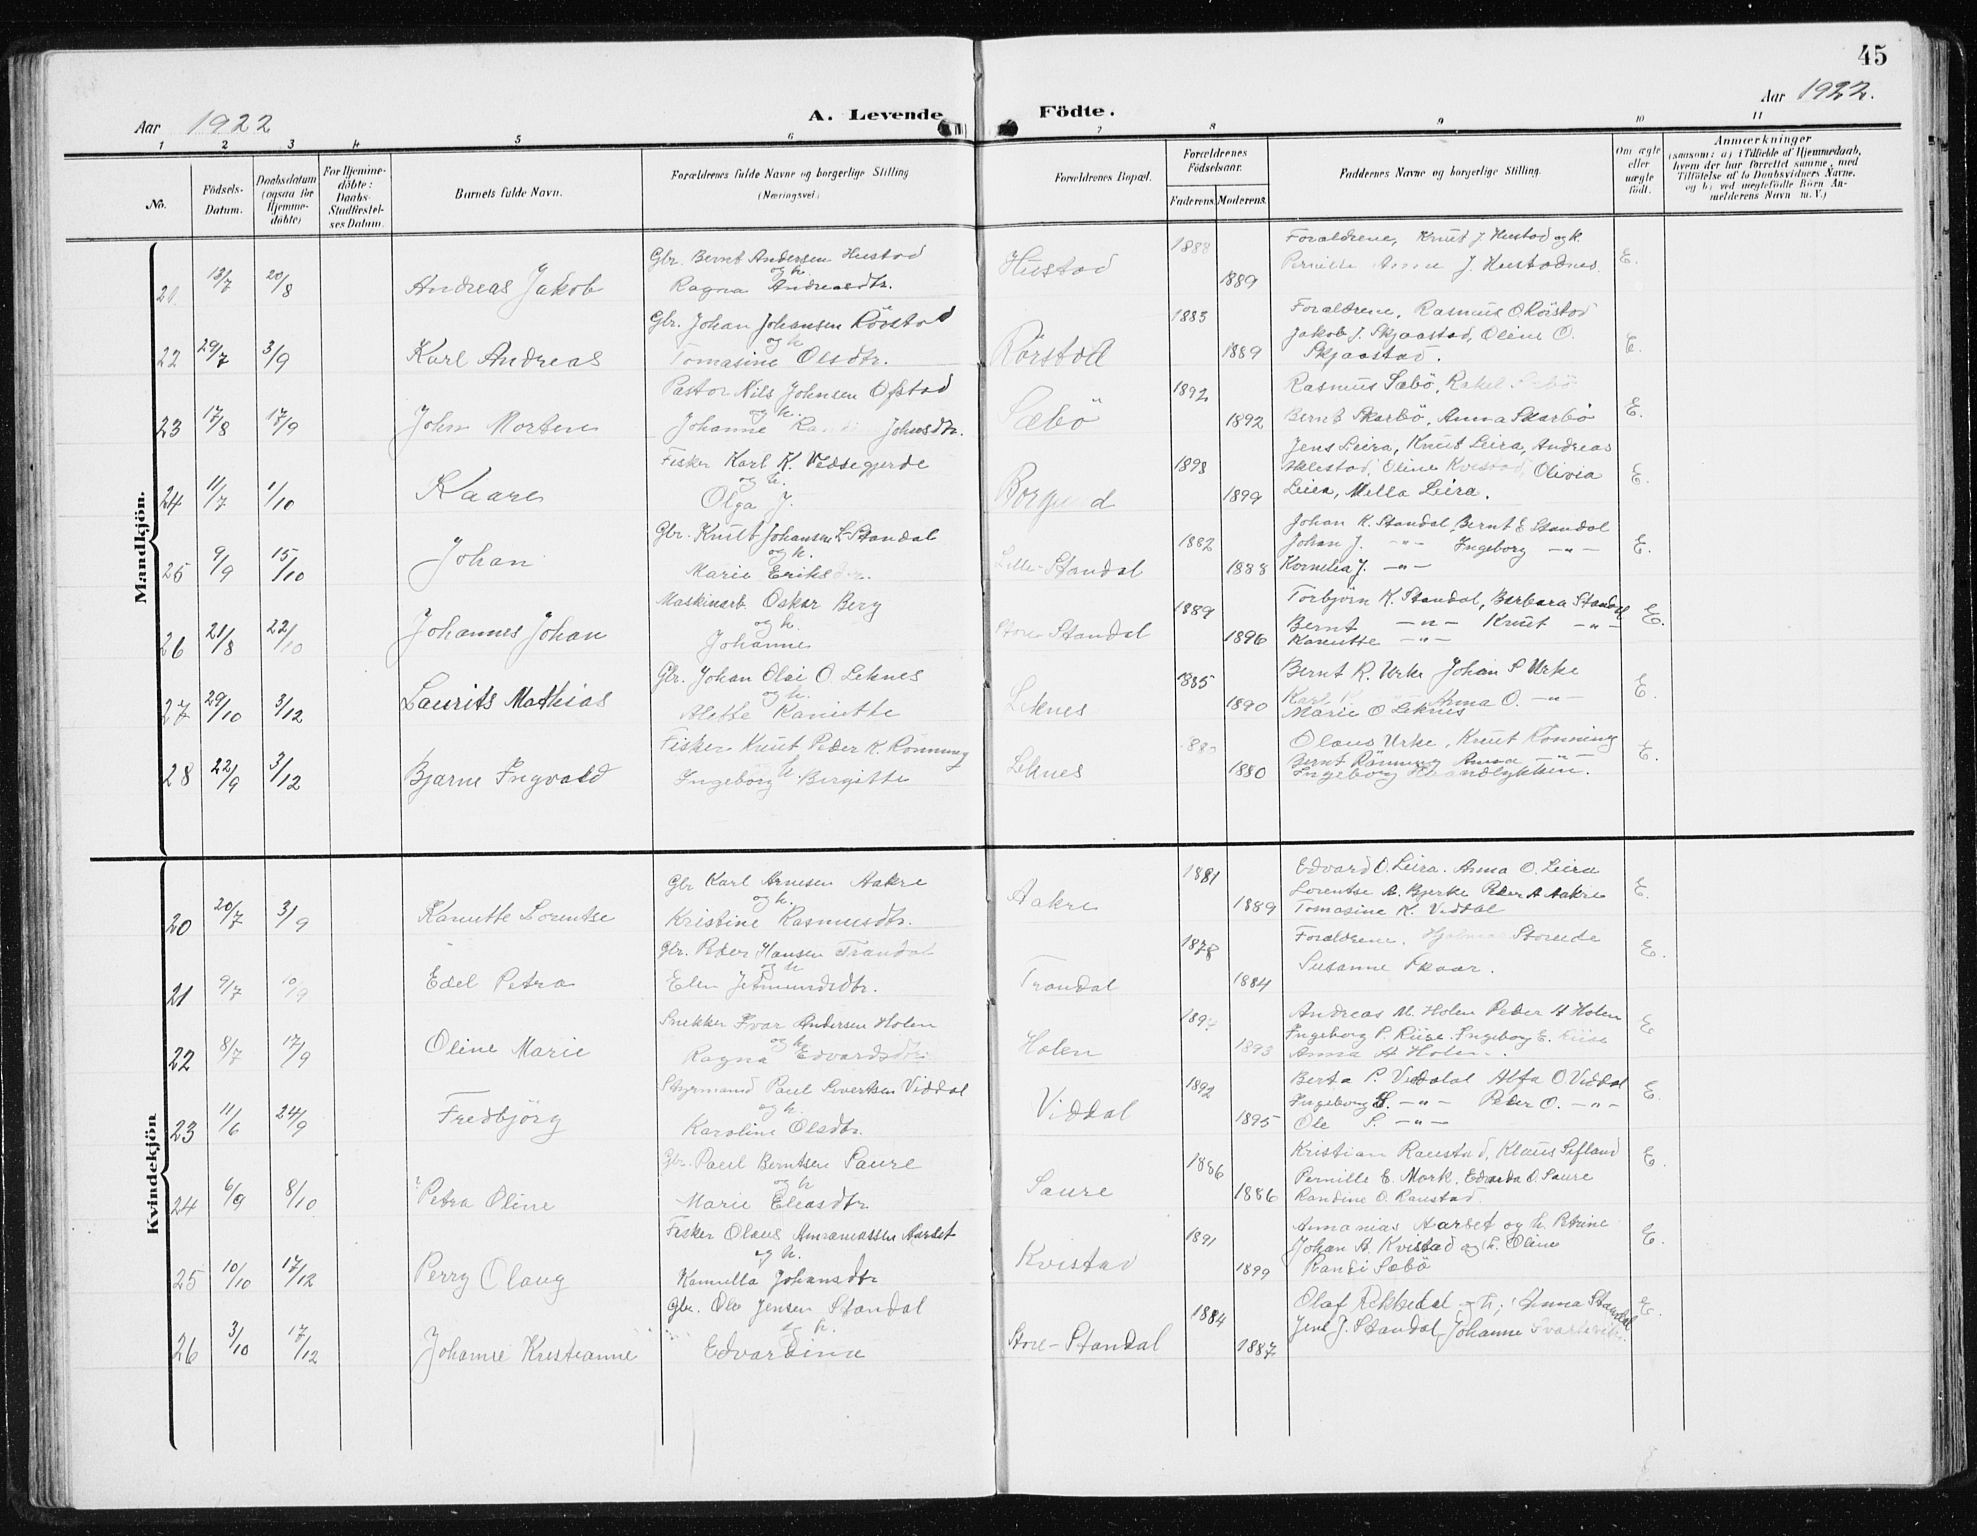 45
Aar 1922
A. Levende Födte.
Aar 1922.
1 2 3 4 5 6 7 8 9 10 11
No.
Födsels-
Datum.
Daabsdatum
(ogsaa for
Hjemme-
döbte)
For Hjemme-
döbte:
Daabs-
Stadfæstel-
ses Datum.
Barnets fulde Navn.
Forældrenes fulde Navne og borgerlige Stilling
(Næringsvei)
Forældrenes Bopæl.
Forældrenes
Födselsaar.
Faderens. Moderens.
Faddernes Navne og borgerlige Stilling.
Om ægte
eller
uægte
födt.
Anmærkninger
(saasom: a) i Tilfælde af Hjemmedaab,
hvem der har forrettet samme, med
Tilföielse af to Daabsvidners Navne.
og b) ved uægtefödte Börn An-
melderens Navn m. V.)
Mandkjön.
21. 13/7 20/8 Andreas Jakob
Gbr. Bernt Andersen Hustad
og h.
Ragna Andreasdtr.
Hustad 1888 1889
Foraldrene, Knut J. Hustad og h.
Pernille Anna J. Hustadnes.
E.
22 29/7 3/9 Karl Andreas
Gbr. Johan Johansen Rörstad
og h
Tomasine Olsdtr.
Rörstad 1885 1889
Foraldrene, Rasmus O Rörstad
Jakob J. Skjaastad, Oline O.
Skjaastad.
E.
23 17/8 17/9 John Morten
Pastor Nils Johnsen Ofstad
og h.
Johanne Johnsdtr.
Sæbö 1892 1892
Rasmus Sæbö, Rakel Sæbö
Bernt Skarbö, Anna Skarbö
E.
24 11/7 1/10 Kaare
Fisker Karl K. Vedsegjerde
og h.
Olga J.
Borgund 1898 1899
Jens Leira, Knut Leira, Andreas
Oline Kvistad, Olivia
Leira, Mella Leira.
E.
25 9/9 15/10 Johan
Gbr. Knut Johansen L-Standal
og h.
Marie Eriksdtr.
Lille-Standal 1882 1888
Johan K. Standal, Bernt E Standal
Johan J. -"- Ingeborg -"-
Kornelia J. -"-
E.
26 21/8 22/10 Johannes Johan
Maskinarb. Oskar Berg
og h.
Johanne
Store-Standal 1889 1896
Torbjörn K. Standal, Barbara Standal
Bernt -"- Knut -"-
Kanutte -"-
E.
27 29/10 3/12 Laurits Mathias
Gbr. Johan Olai O. Leknes
og h.
Alette Kanutte
Leknes 1885 1890
Bernt R. Urke Johan S Urke
Karl Anna O. -"-
Marie O Leknes
E.
28 22/9 3/12 Bjarne Ingvald
Fisker Knut Peder K. Rönning
h.
Ingeborg Bergitte
Leknes 1880 1880
Olaus Urke, Knut Rönning
Bernt Rönning Anna -"-
Ingeborg Haandlykken.
E.
Kvindekjön
20 20/7 3/9 Kanutte Lorentse
Gbr Karl Arnesen Aakre
og h.
Kristine Rasmusdtr.
Aakre 1881 1889
Edvard O. Leira. Anna O. Leira
Lorentse A. Bjerke Peder A Aakre
Tomasine K. Viddal
E.
21 9/7 10/9 Edel Petra
Gbr. Peder Hansen Trandal
og h
Elen Jetmundsdtr.
Trandal 1878 1884
Foraldrene, Hjalmar Storeide
Susanne Skaar.
E.
22 8/7 17/9 Oline Marie
Snekker Ivar Andersen Holen
og h
Ragna Edvardsdtr.
Holen 1893
Andreas M. Holen Peder A Holen
Ingeborg P. Riise. Ingeborg E. Riise
Anna A Holen.
E
23 11/6 24/9 Fredbjörg
Styrmand Paul Sivertsen Viddal
og h
Karoline Olsdtr.
Viddal 1892 1895
Berta P. Viddal Alfa O. Viddal
Ingeborg S. -"- Peder O. -"-
Ole S. -"-
E.
24 6/9 8/10 Petra Oline
Gbr. Paul Berntsen Saure
og h
Marie Eleasdtr.
Saure 1886 1886
Kristian Raustad, Klaus Sifland
Pernille E. Mork, Edvarda O. Saure
Randine O. Raustad.
E.
25 10/10 17/12 Perry Olaug
Fisker Olaus Aarset
og h.
Kamella Johansdtr
Kvistad 1891 1899
Annanias Aarset og h. Petrine
Johan A. Kvistad og h. Oline
Randi Sæbö
E.
26 3/10 17/12 Johanne Kristianne
Gbr. Ole Jensen Standal
h.
Edvardine
Store-Standal 1884 1887
Olaf Rekkedal h; Anna Standal
Jens J. Standal, Johanne
E.